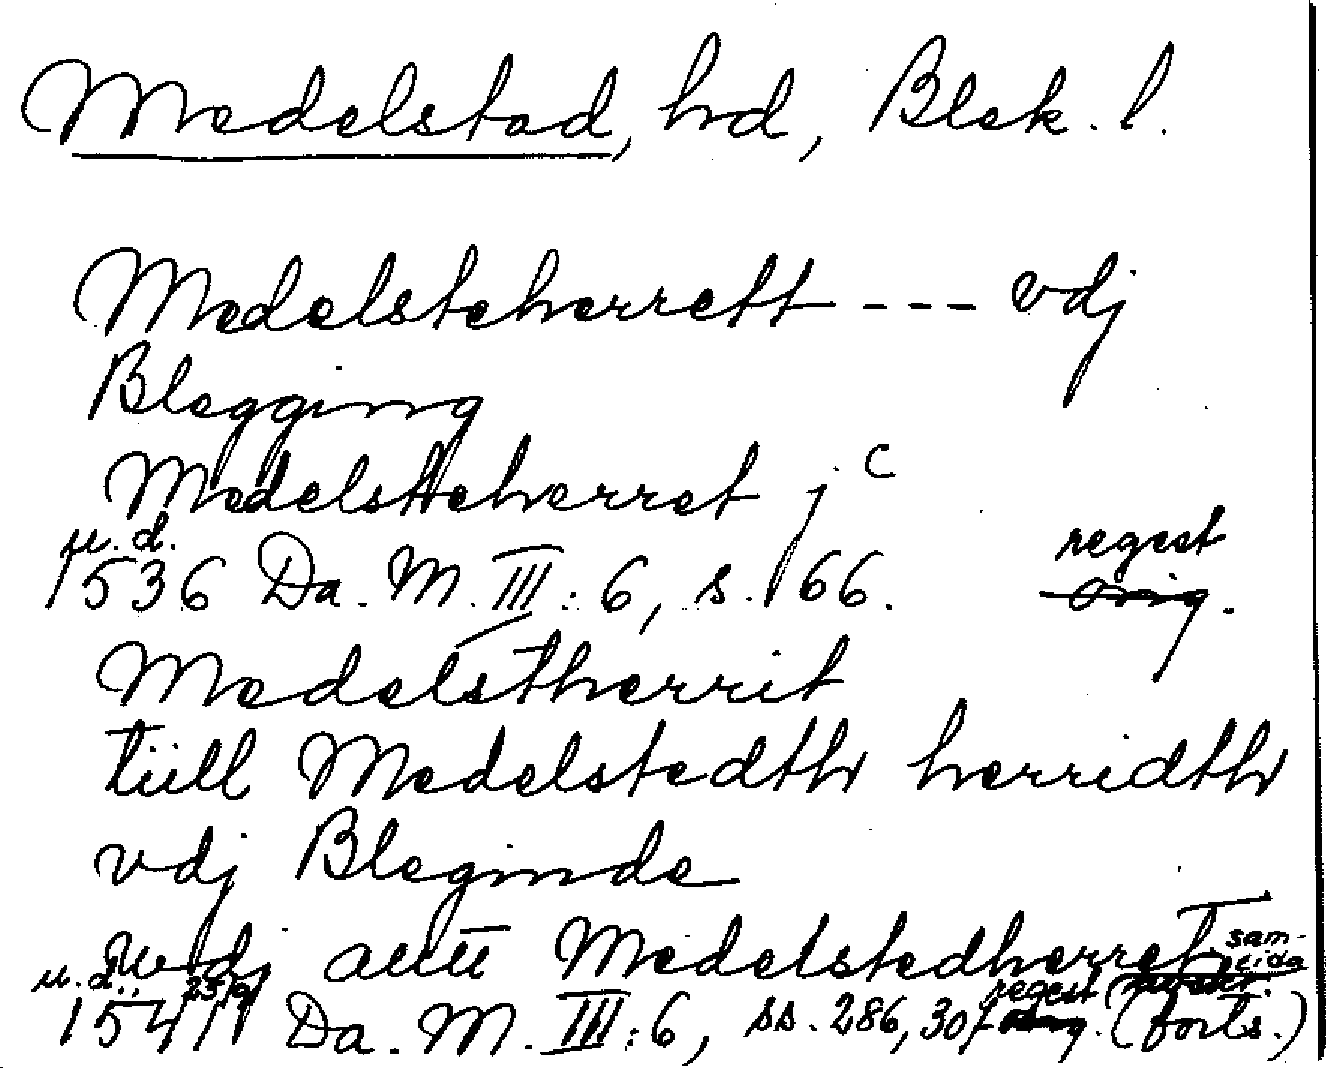 Medelstad, hd, Blek. l.
Medelsteherrett --- vdj
Blegging
Medelsteherret j c
u. d.
1536 Da. M. III: 6, s. 166. regest orig.
Medelstherrit
tüll Medelstedth herridth
vdj Bleginde
wdj Medelstedherret sam-
u. d., 25/9 tida
1541 Da. M. III: 6, ss. 286, 307 regest orig. (forts.)